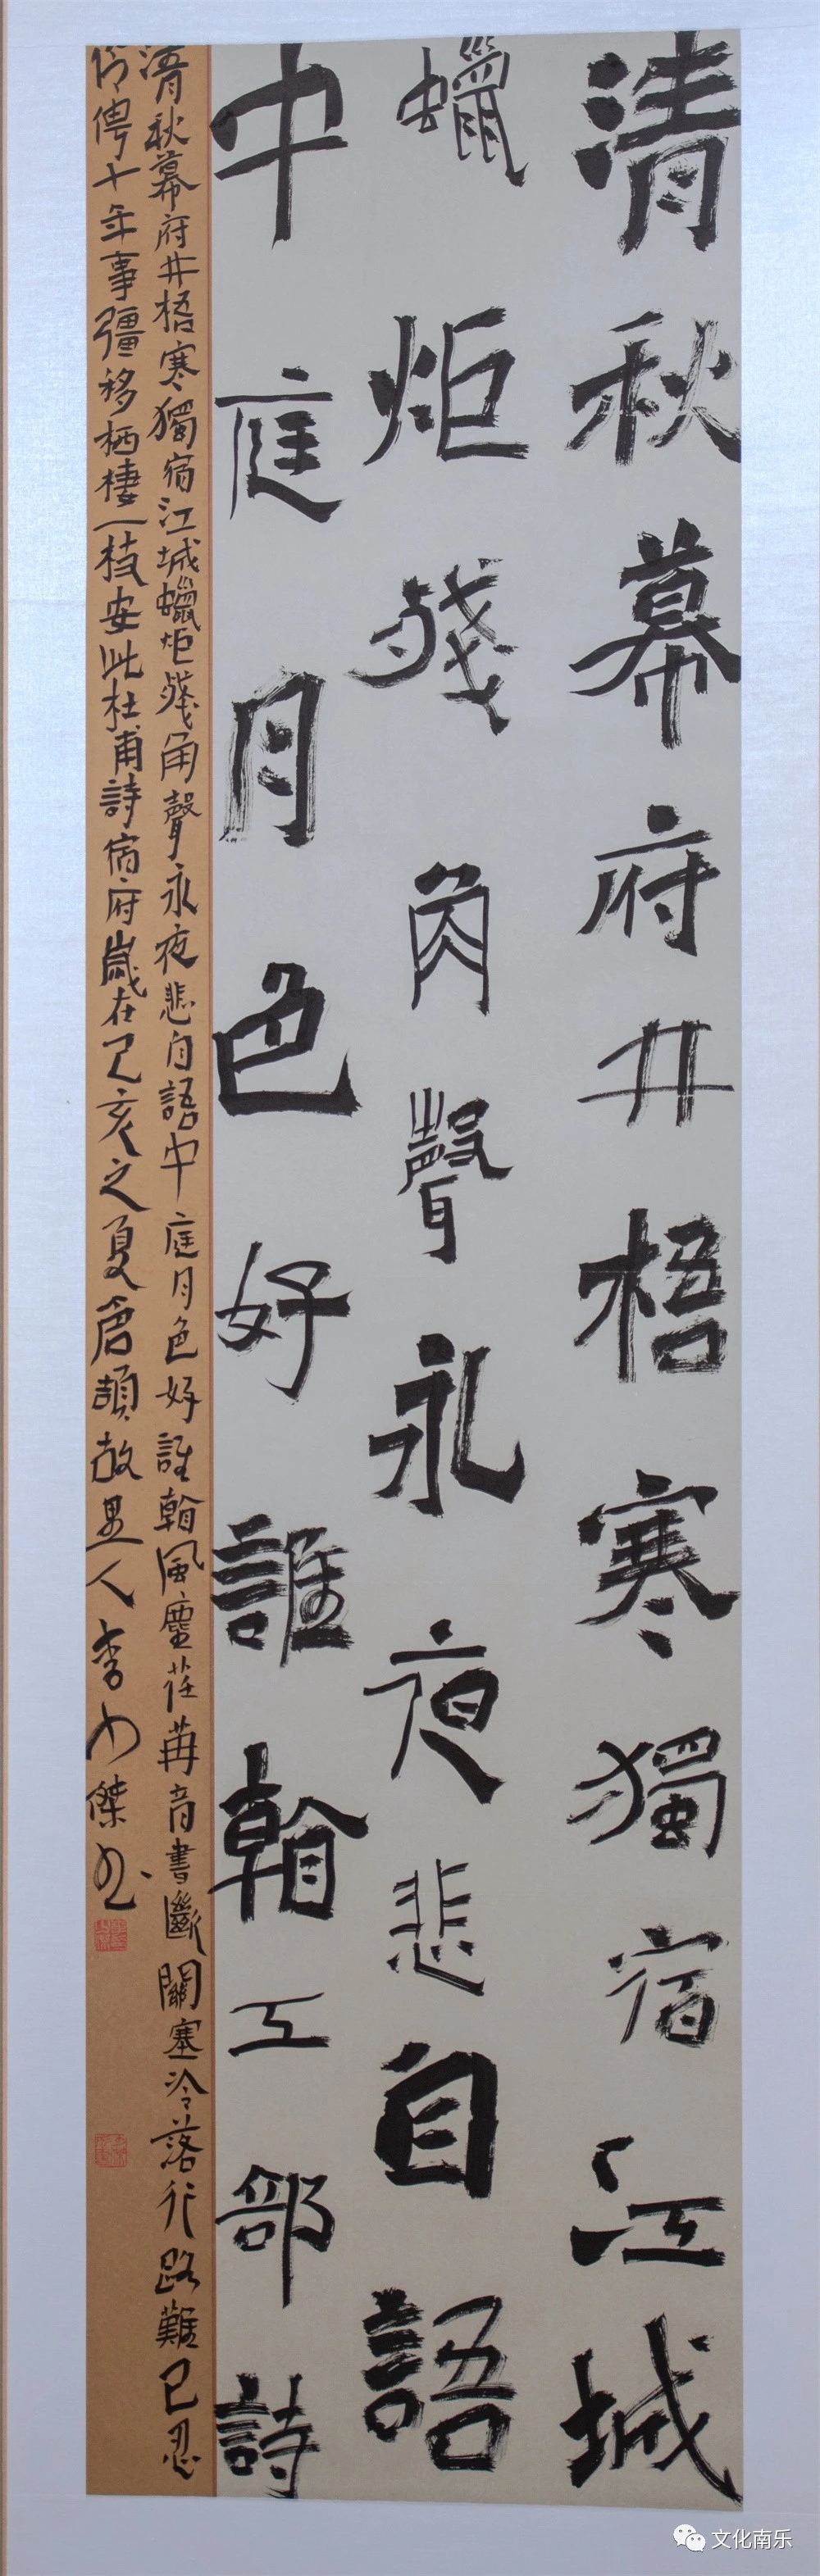 清秋幕府井梧寒獨宿江城
蠟炬殘角聲永夜悲自語
中庭月色好誰翰工部詩
清秋幕府井梧寒獨宿江城蠟炬殘角聲永夜悲自語中庭月色好誰翰風塵荏苒音書斷關塞冷落行路難已忍
伶俜十年事彊移栖棲一枝安此杜甫詩宿府歲在己亥之夏倉頡故里人李少傑书
文化南乐